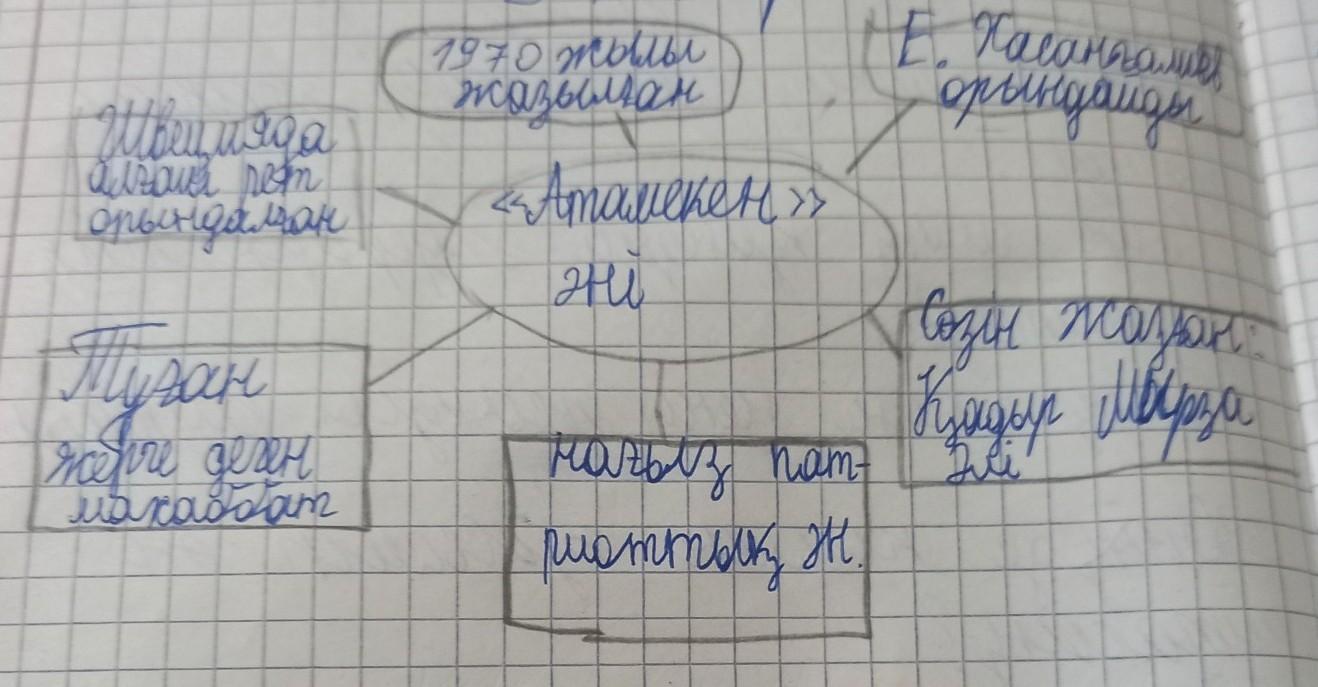 1970 жылы
жазылған
Е. Хасанғалиев
орындайды
Швецияда
алғаш рет
орындалған
«Атамекен»
әні
Туған
жерге деген
махаббат
нағыз пат-
риоттық ән.
Сөзін жазған:
Қадыр Мырза
Әлі